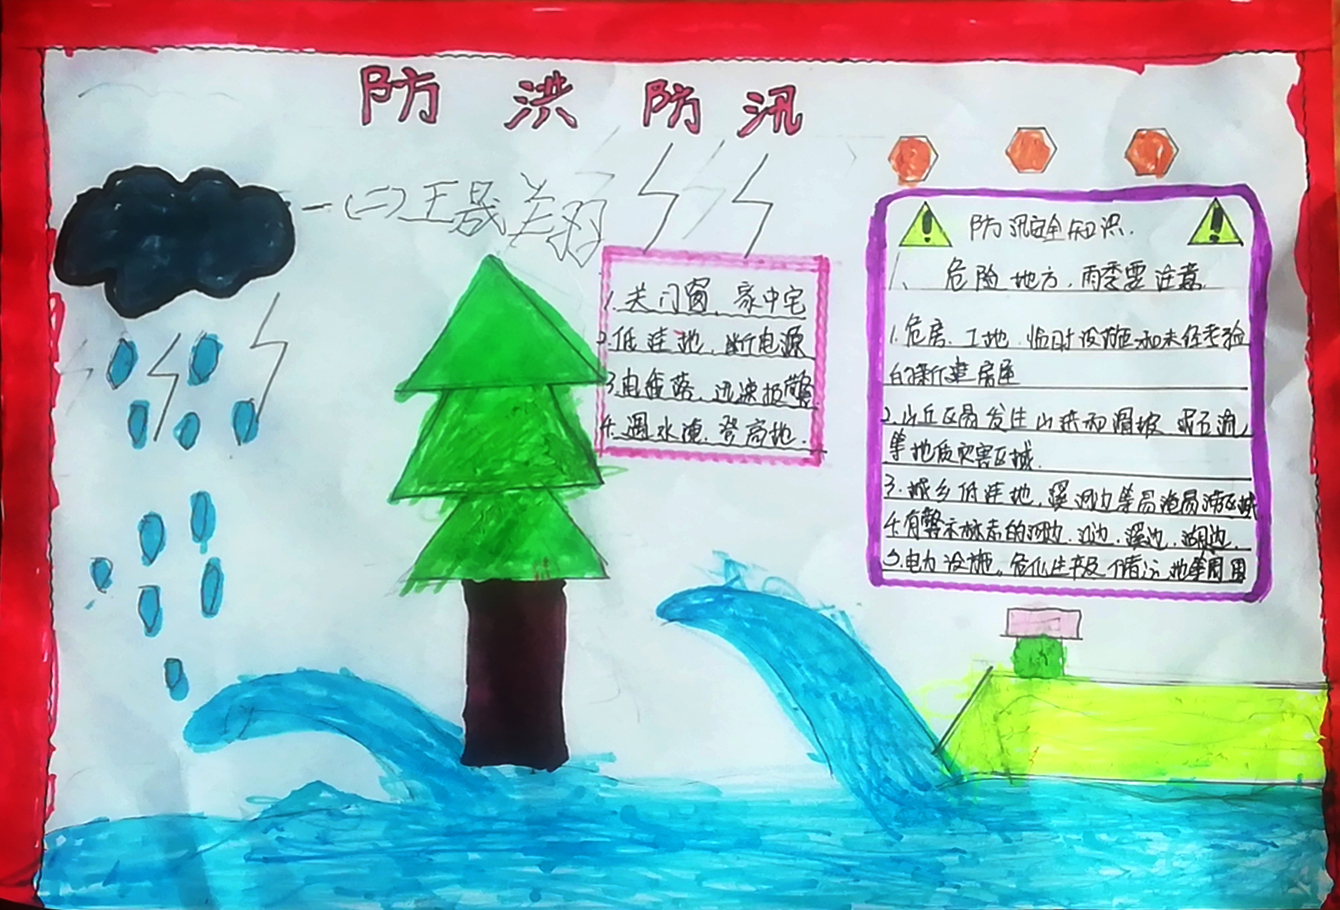 防洪防汛
一(二)王晟翔
1.关门窗、家中宅
2.低洼地、断电源
3.电线落、迅速报警
4.遇水淹、登高地.
防汛安全知识.
1、危险地方,雨季要注意.
1.危房、工地、临时设施和未经考验
的深行建房屋
2.山丘区易发生山洪和滑坡、或石流
等地质灾害区域.
3.城乡低洼地,溪河边等易淹易涝区域
4.有警示标志的河边、江边、溪边、湖边.
5.电力设施、危化生产及储污地等周围